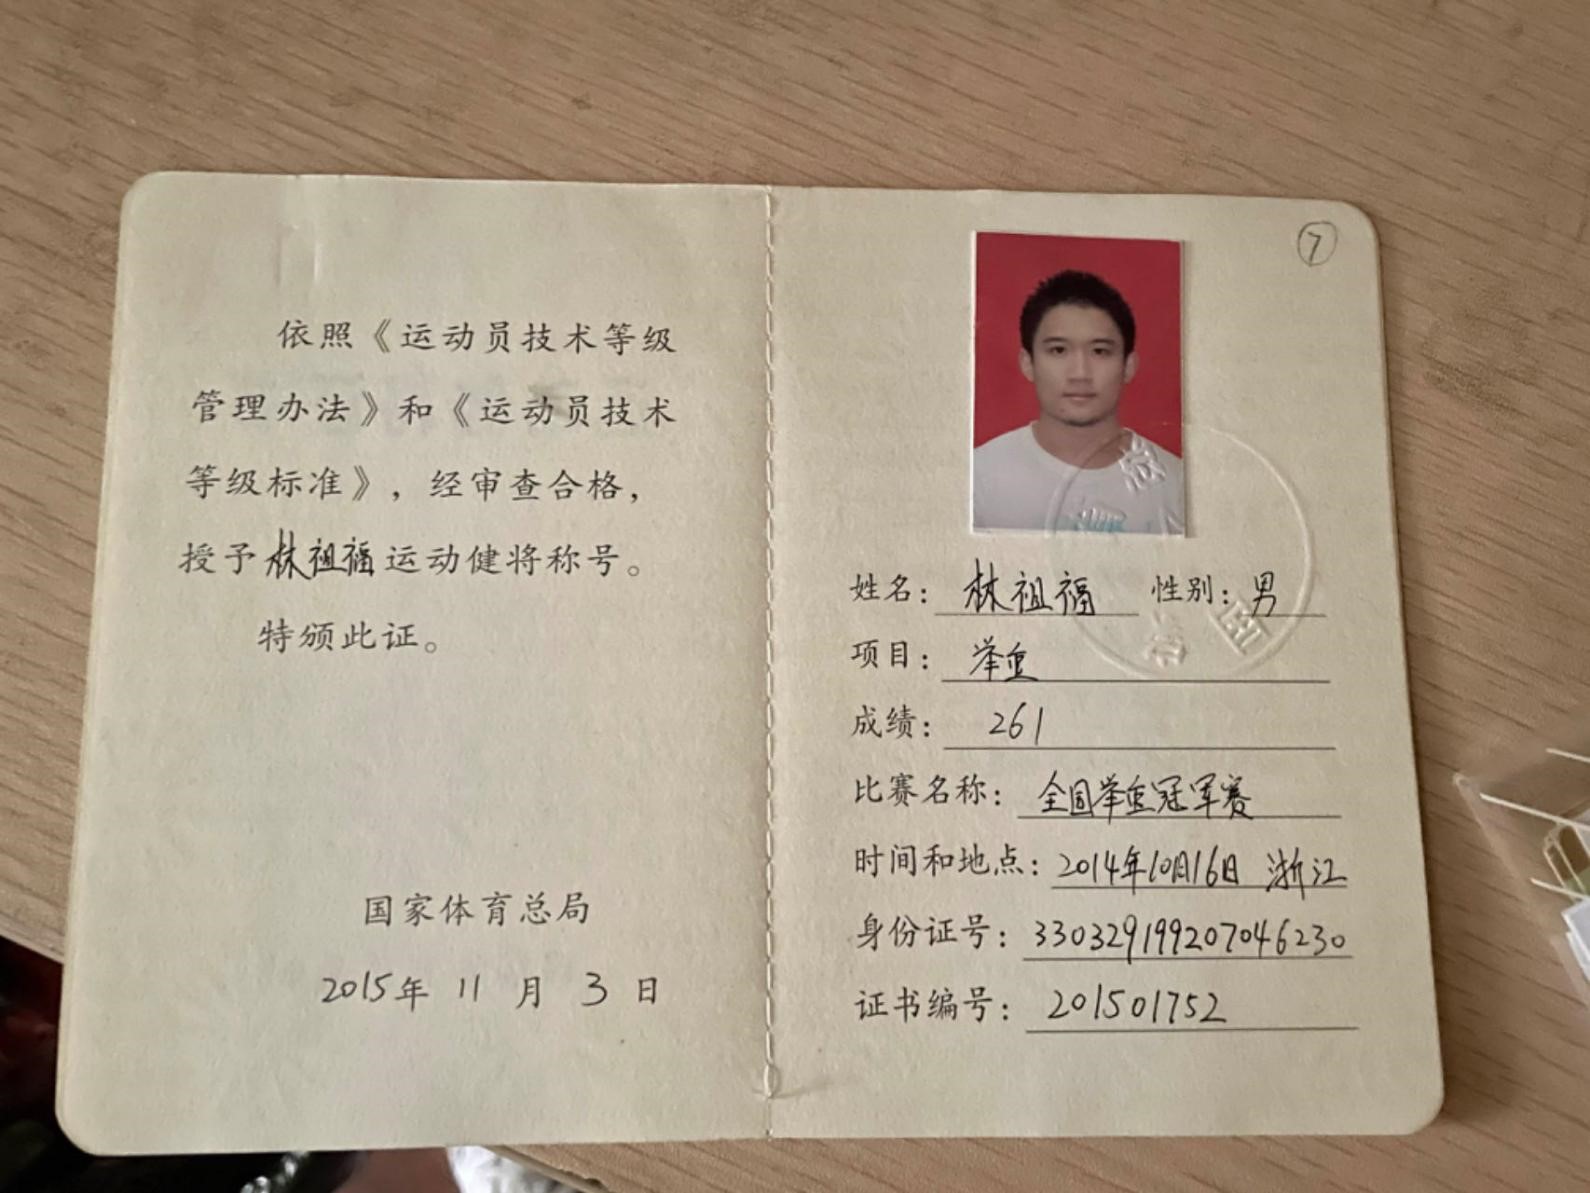 依照《运动员技术等级
管理办法》和《运动员技术
等级标准》，经审查合格，
授予林祖福运动健将称号。
特颁此证。
国家体育总局
2015年 11 月 3 日
7
姓名：林祖福 性别：男
项目：举重
成绩：261
比赛名称：全国举重冠军赛
时间和地点：2014年10月16日 浙江
身份证号：330329199207046230
证书编号：201501752